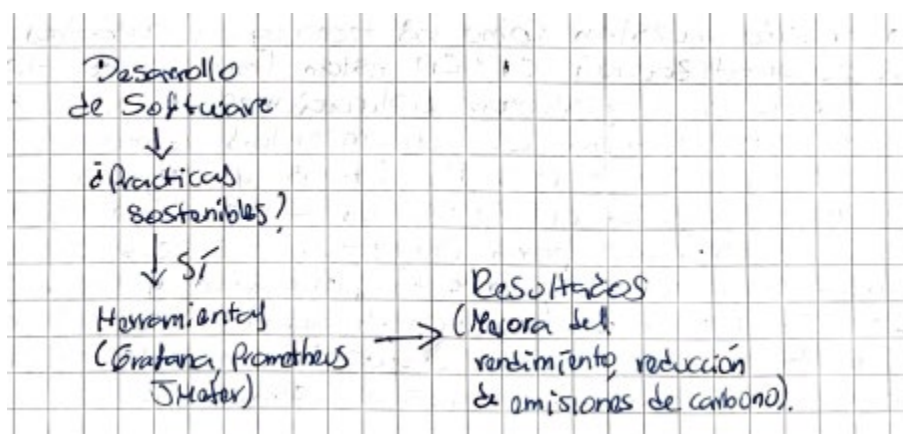 Desarrollo
de Software
¿Practicas
sostenibles?
Sí
Herramientas
(Grafana, Prometheus
JMeter)
Resultados
(Mejora del
rendimiento, reducción
de emisiones de carbono).